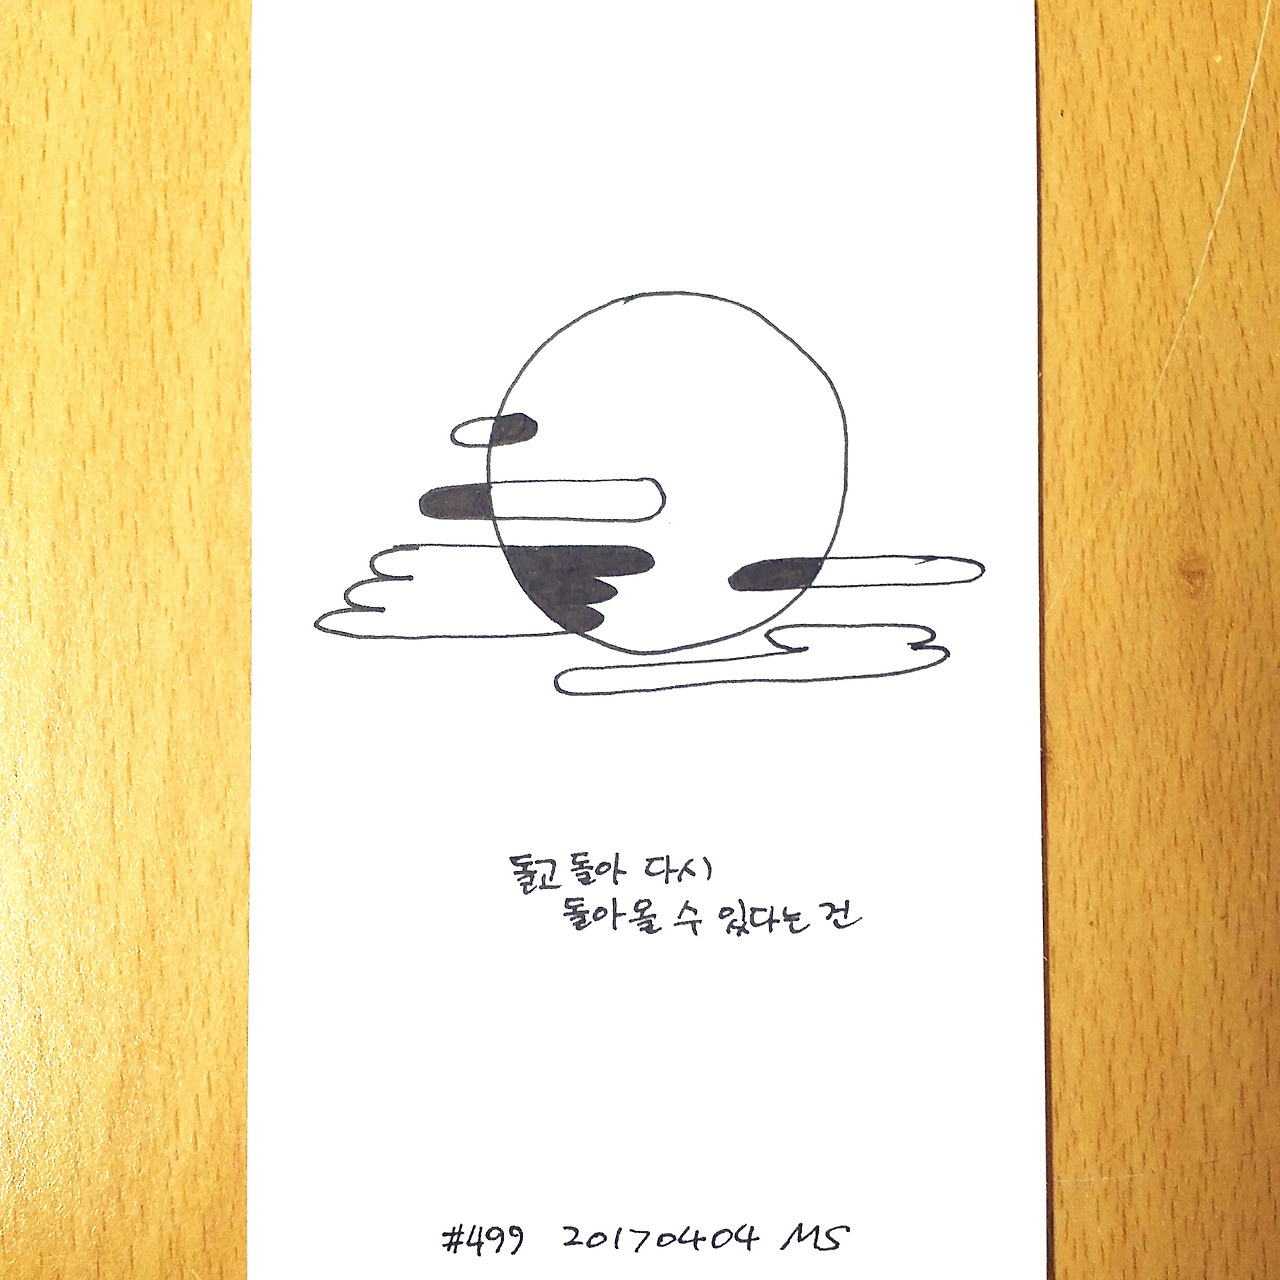 돌고 돌아 다시
돌아올 수 있다는 건
#499 20170404 MS